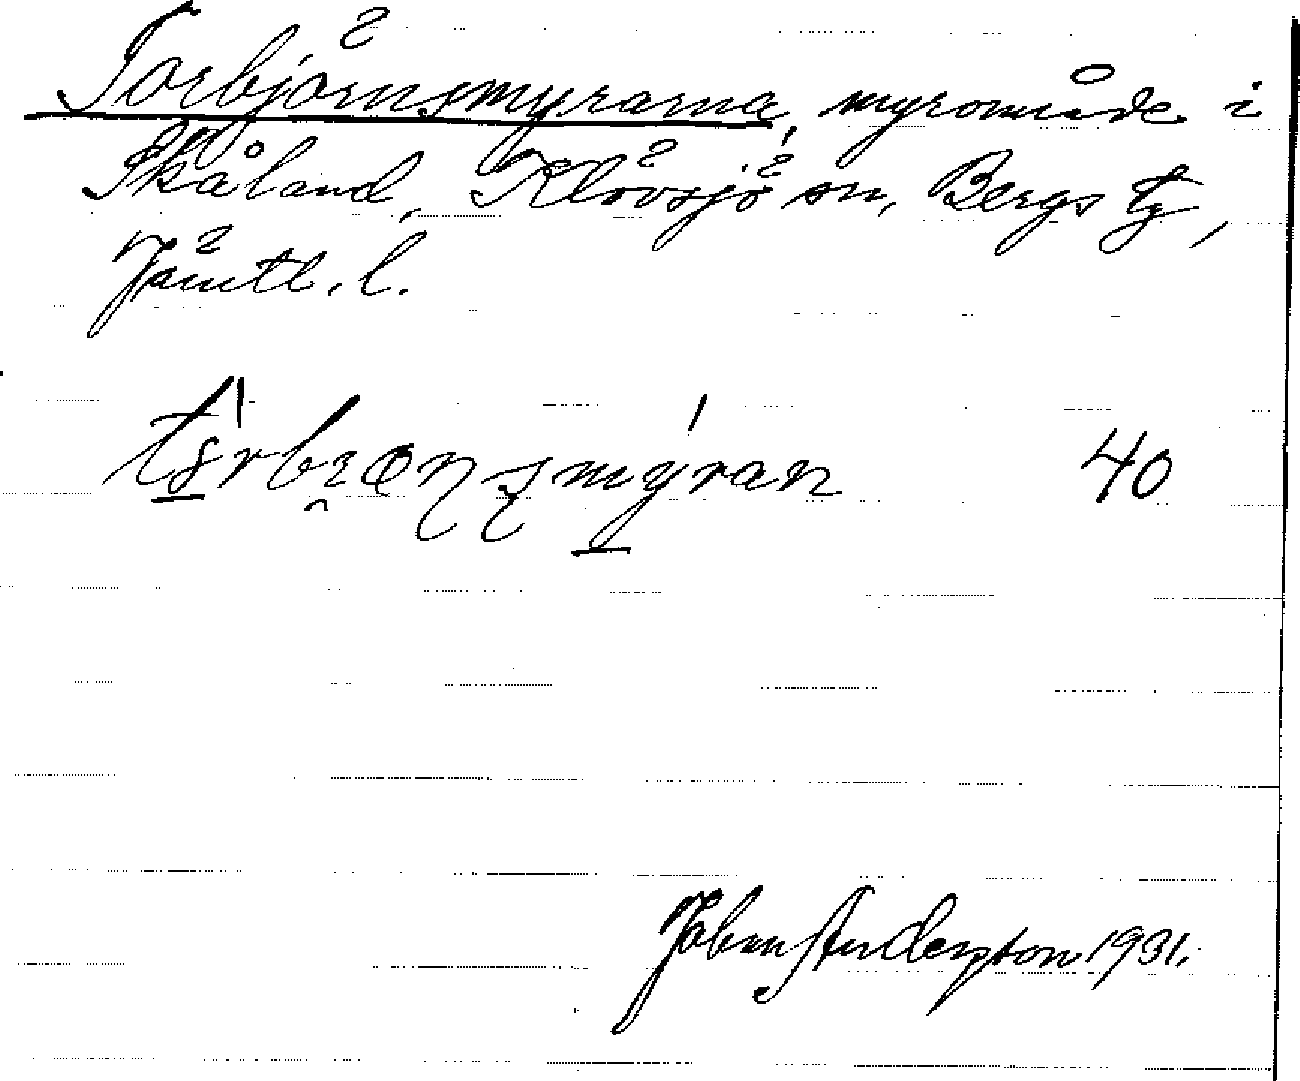 Torbjörnsmyrarna, myrområde i
Skåland, Klövsjö sn, Bergs tg,
Jämtl. l.
40
John Anderzton 1931.